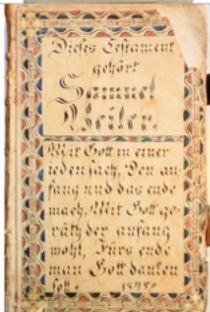 Dieses Testament
gehört
Samuel
Beiler.
Mit Gott in einer
jeden sach, Den an
fang und das ende
mach, Mit Gott ge-
räth der anfang
wohl, Fürs ende
man Gott danken
soll. 1848.